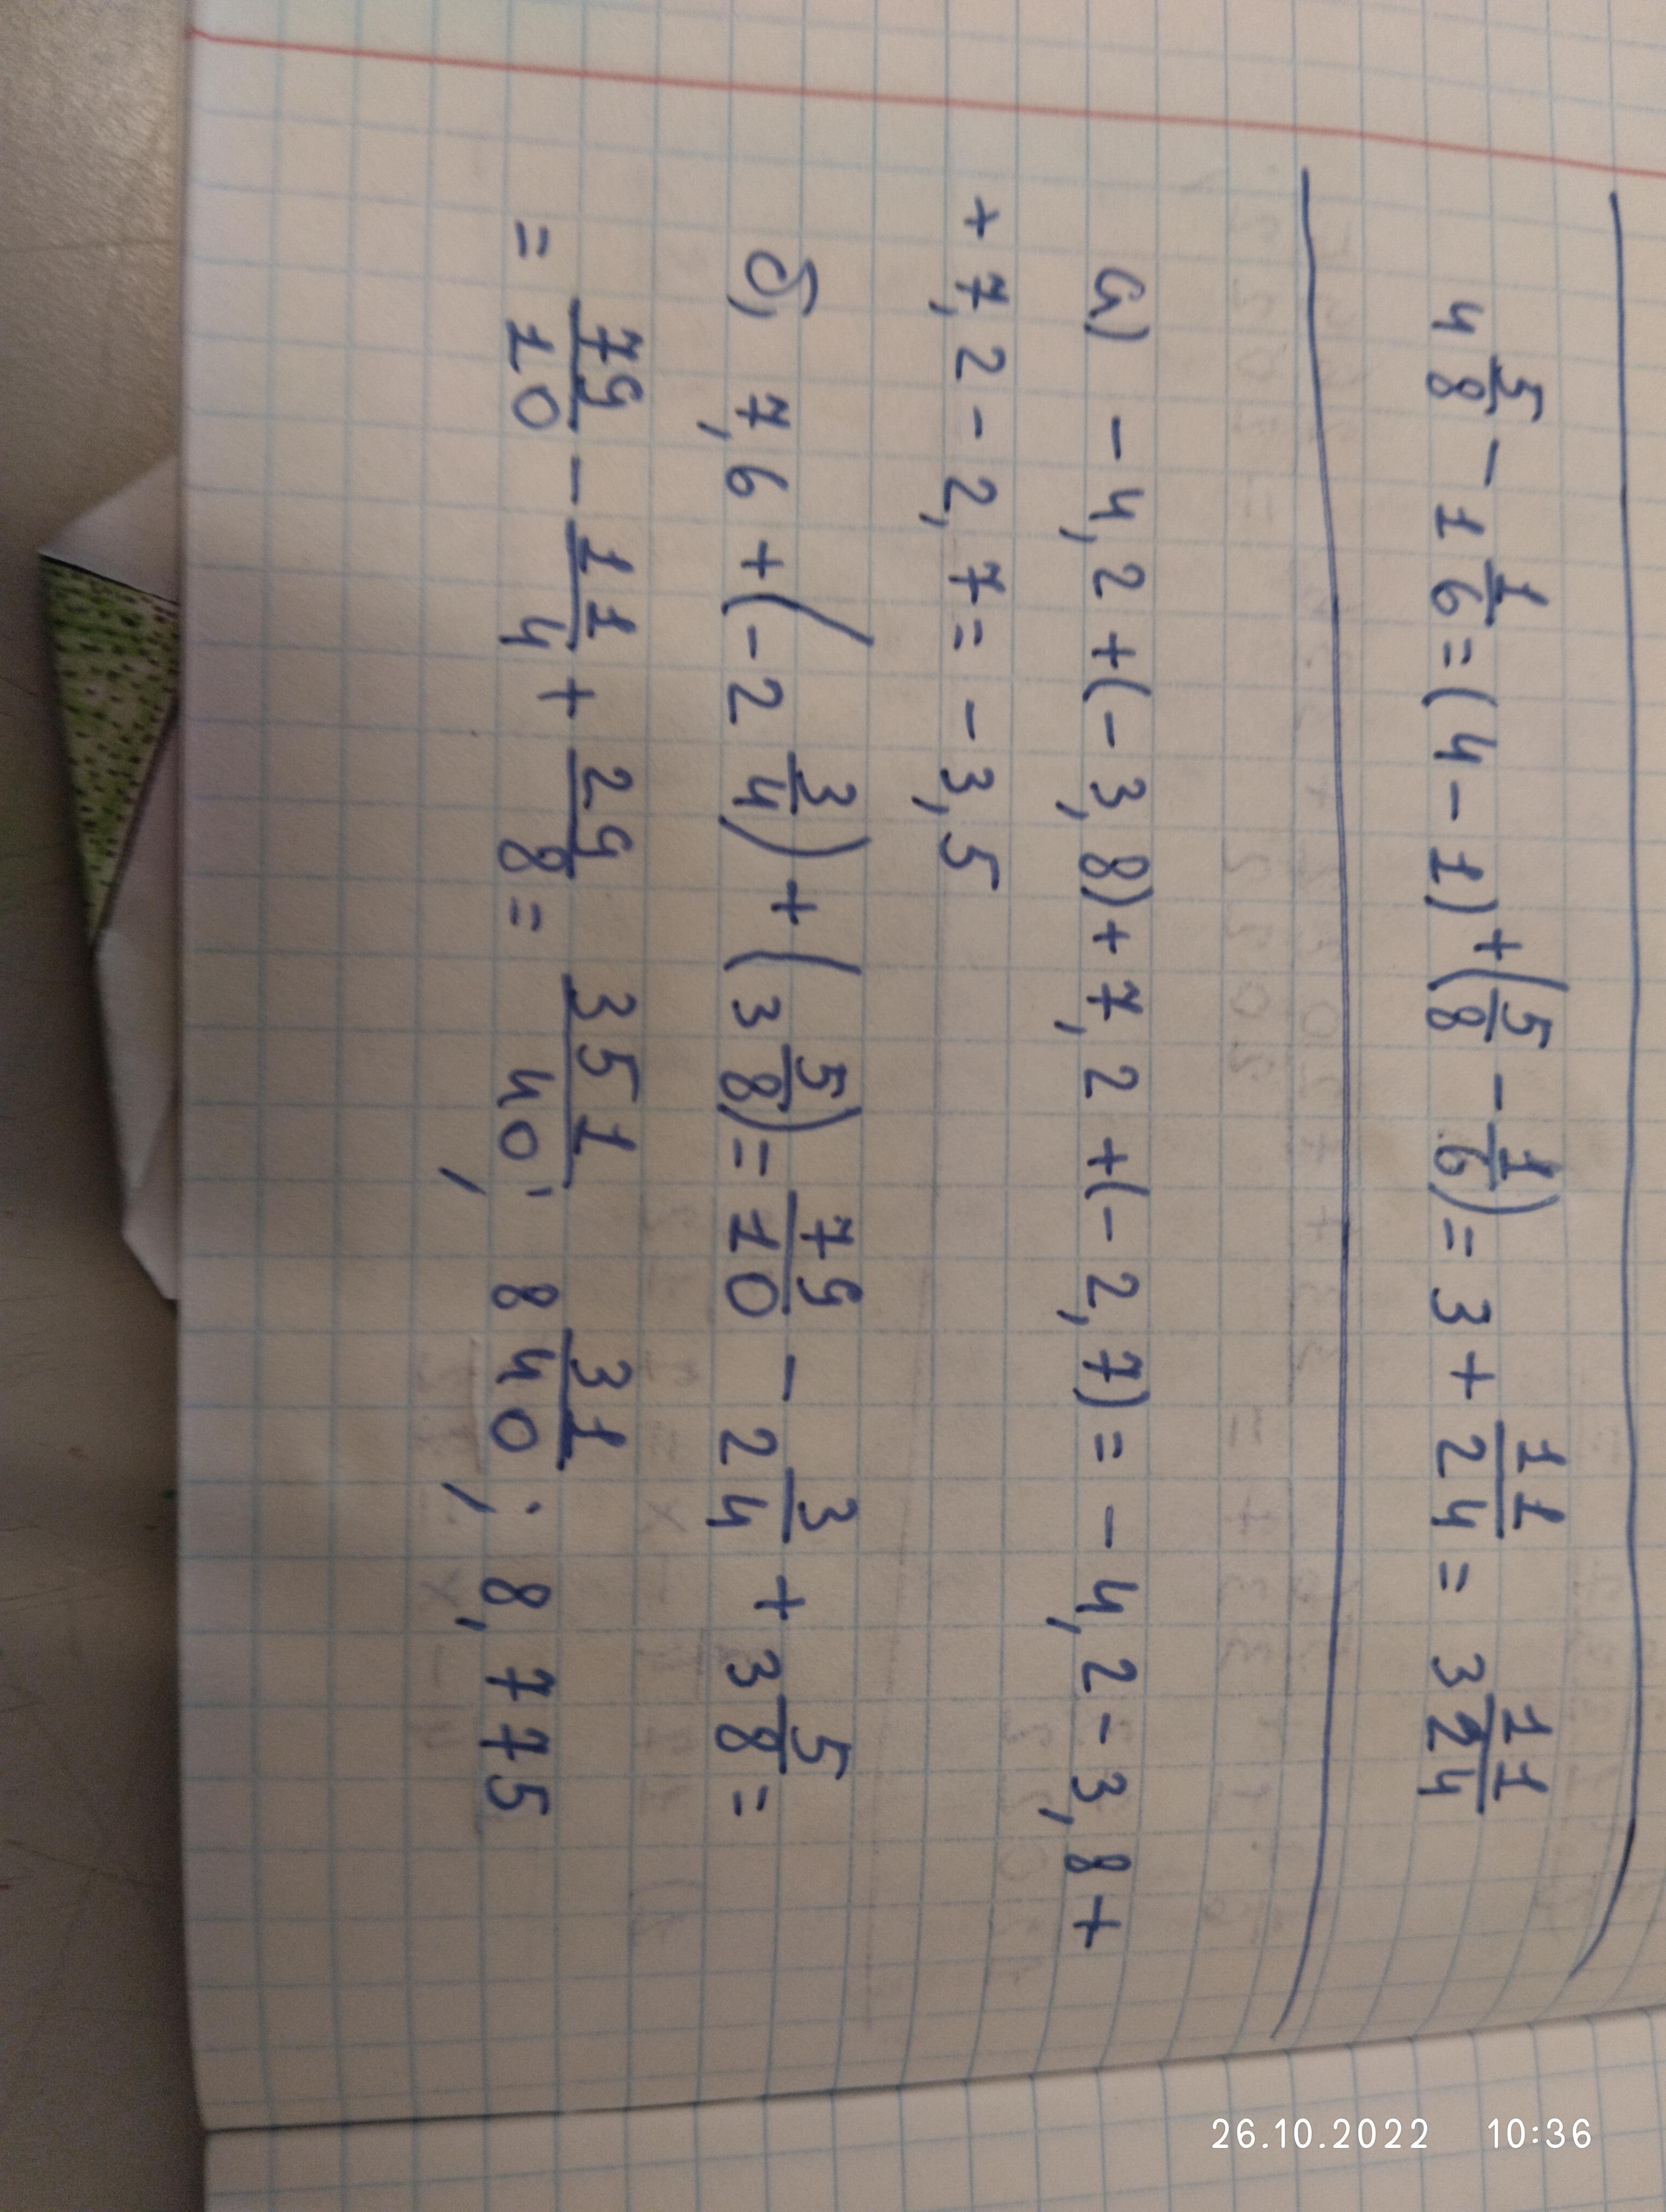 4 5/8 - 1 1/6 = (4 - 1) + (5/8 - 1/6) = 3 + 11/24 = 3 11/24
а) - 4,2 + (- 3,8) + 7,2 + (- 2,7) = - 4,2 - 3,8 +
+ 7,2 - 2,7 = - 3,5
б) 7,6 + (- 2 3/4) + (3 5/8) = 79/10 - 2 3/4 + 3 5/8 =
= 79/10 - 11/4 + 29/8 = 351/40; 8 31/40; 8,775
26.10.2022 10:36